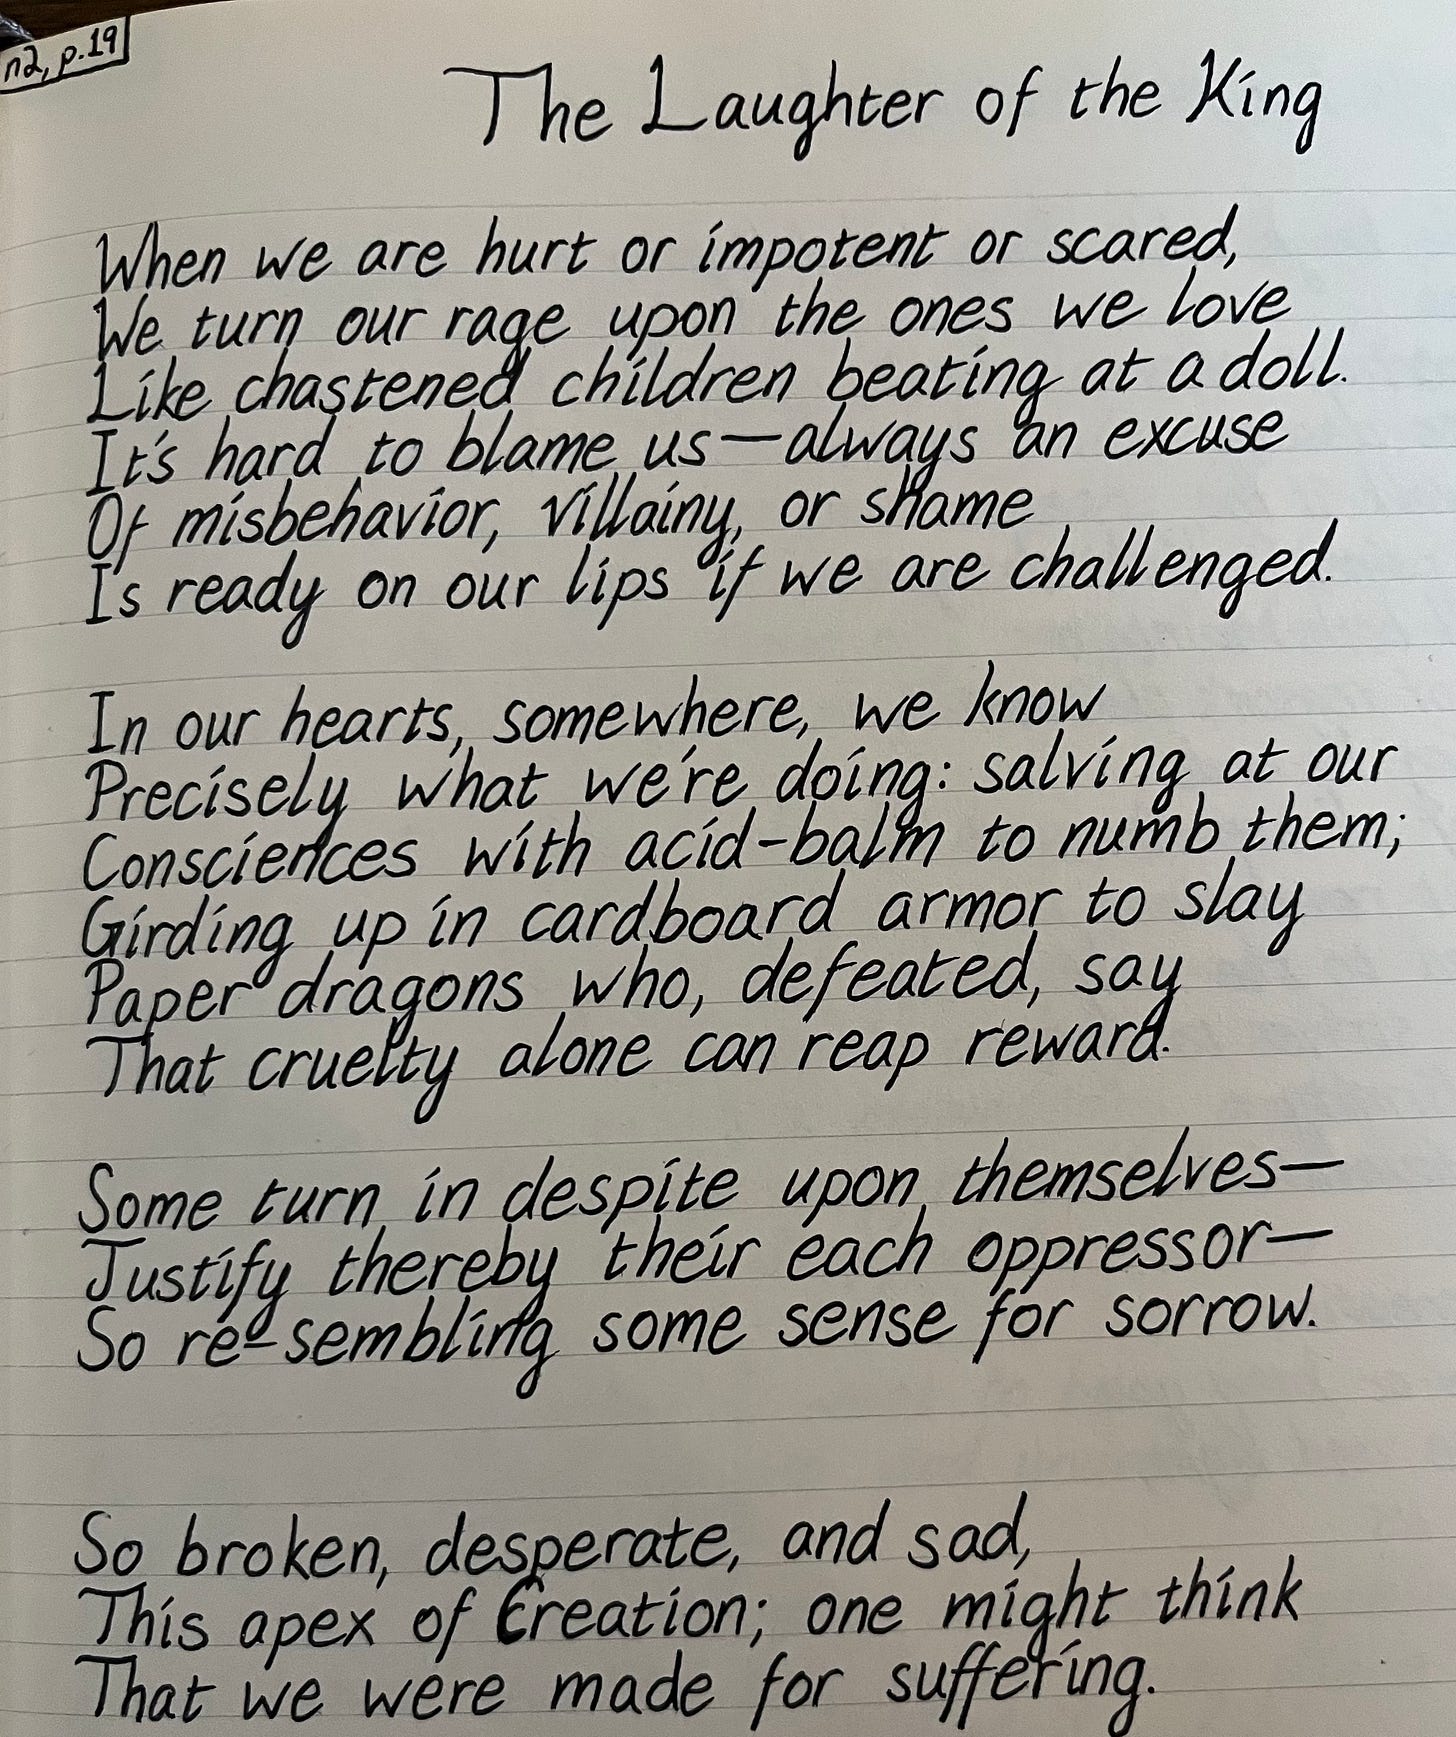 n2, p.19
The Laughter of the King
When we are hurt or impotent or scared,
We turn our rage upon the ones we love
Like chastened children beating at a doll.
It's hard to blame us—always an excuse
Of misbehavior, villainy, or shame
Is ready on our lips if we are challenged.
In our hearts, somewhere, we know
Precisely what we're doing: salving at our
Consciences with acid-balm to numb them;
Girding up in cardboard armor to slay
Paper dragons who, defeated, say
That cruelty alone can reap reward.
Some turn in despite upon themselves—
Justify thereby their each oppressor—
So re-sembling some sense for sorrow.
So broken, desperate, and sad,
This apex of Creation; one might think
That we were made for suffering.